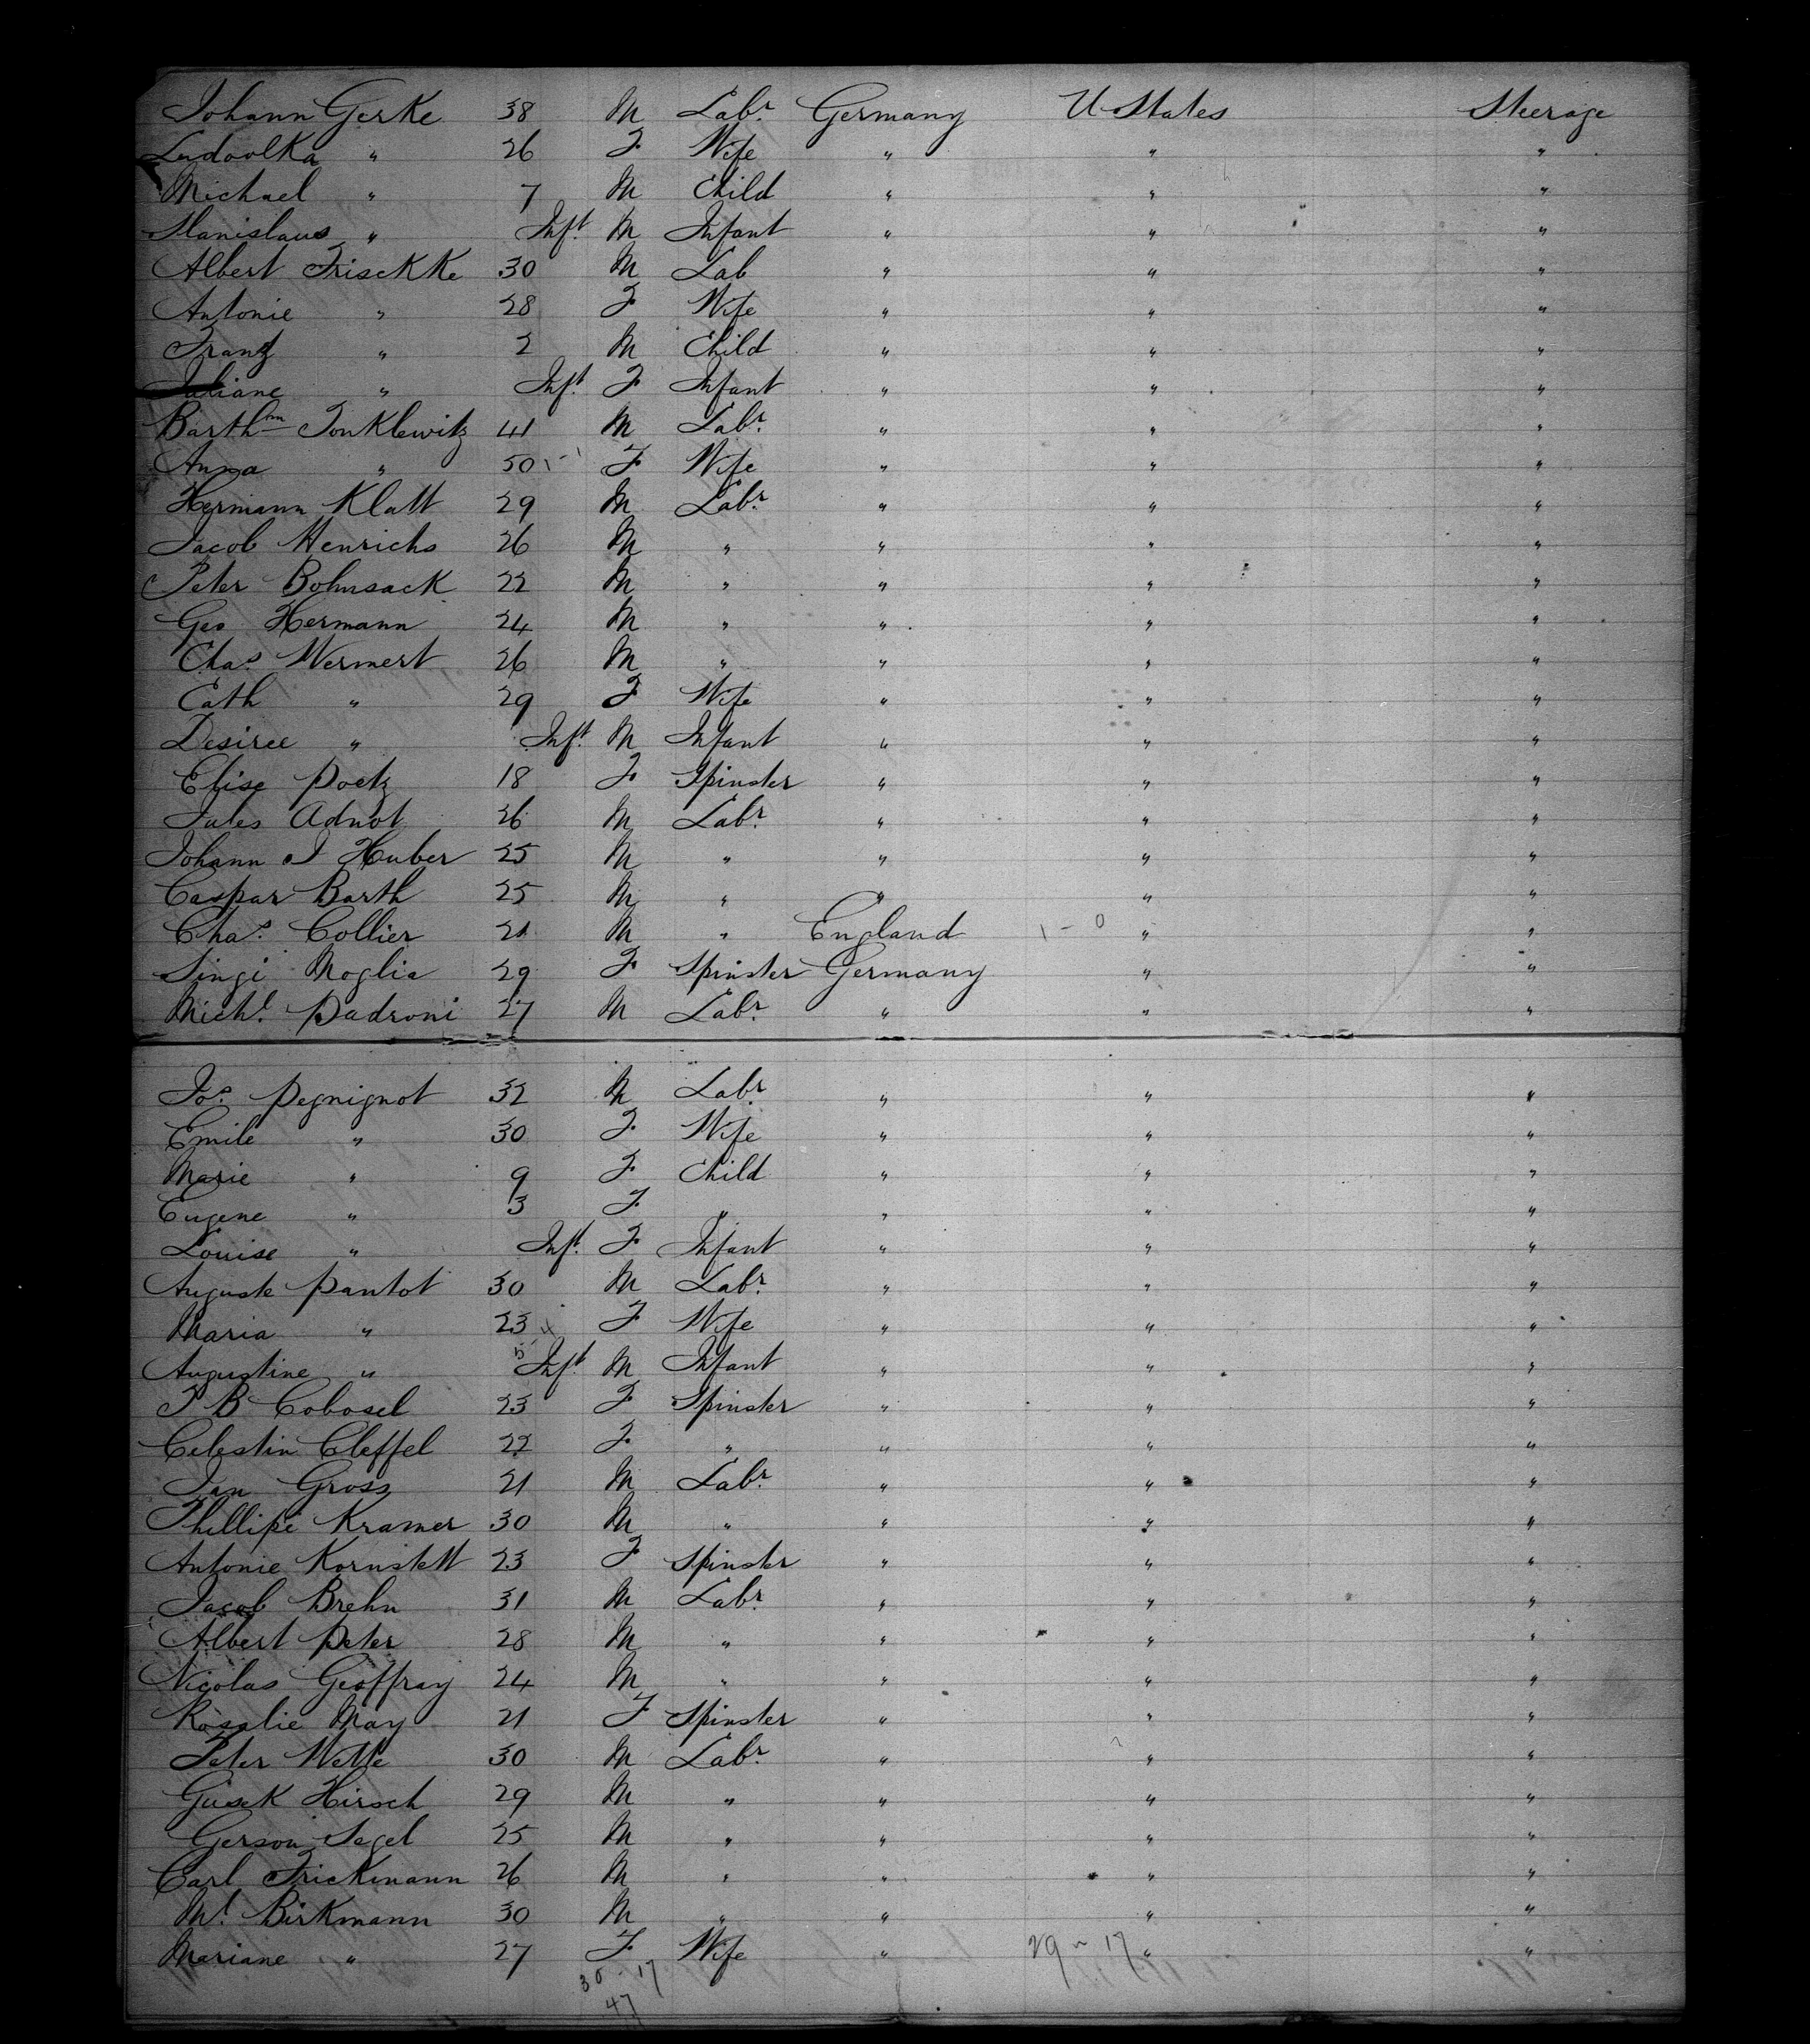 Johann Gerke 38 M Labr. Germany U States Steerage
Ludovika " 26 F Wife " " "
Michael " 7 M Child " " "
Stanislaus " Inft. M Infant " " "
Albert Frisckke 30 M Lab " " "
Antonie " 28 F Wife " " "
Frantz " 2 M Child " " "
Juliane " Inft. F Infant " " "
Barthm Tonklewitz 41 M Labr. " " "
Anna " 50 F Wife " " "
Hermann Klatt 29 M Labr. " " "
Jacob Henrichs 26 M " " " "
Peter Bohnsack 22 M " " " "
Geo Hermann 24 M " " " "
Chas. Wermert 26 M " " " "
Cath " 29 F Wife " " "
Desiree " Inft. M Infant " " "
Elise Poetz 18 F Spinster " " "
Jules Adnot 26 M Labr. " " "
Johann J Huber 25 M " " " "
Caspar Barth 25 M " " " "
Chas. Collier 21 M " England 1 - 0 " "
Singi Moglia 29 F Spinster Germany " "
Michl. Padroni 27 M Labr. " " "
Jos. Pegnignot 32 M Labr. " " "
Emile " 30 F Wife " " "
Marie " 9 F Child " " "
Eugene " 3 F " " " "
Louise " Inft. F Infant " " "
Auguste Pantot 30 M Labr. " " "
Maria " 23 F Wife " " "
Augustine " Inft. M Infant " " "
J B Cobosel 23 F Spinster " " "
Celestin Cleffel 22 F " " " "
Jan Gross 21 M Labr. " " "
Phillipe Kramer 30 M " " " "
Antonie Kornstett 23 F Spinster " " "
Jacob Brehn 31 M Labr. " " "
Albert Peter 28 M " " " "
Nicolas Geoffray 24 M " " " "
Rosalie May 21 F Spinster " " "
Peter Wette 30 M Labr. " " "
Gusek Hirsch 29 M " " " "
Gerson Segel 25 M " " " "
Carl Frickmann 26 M " " " "
Mt. Birkmann 30 M " " " "
Mariane " 27 F Wife " 29 - 17 " "
30 - 17
47